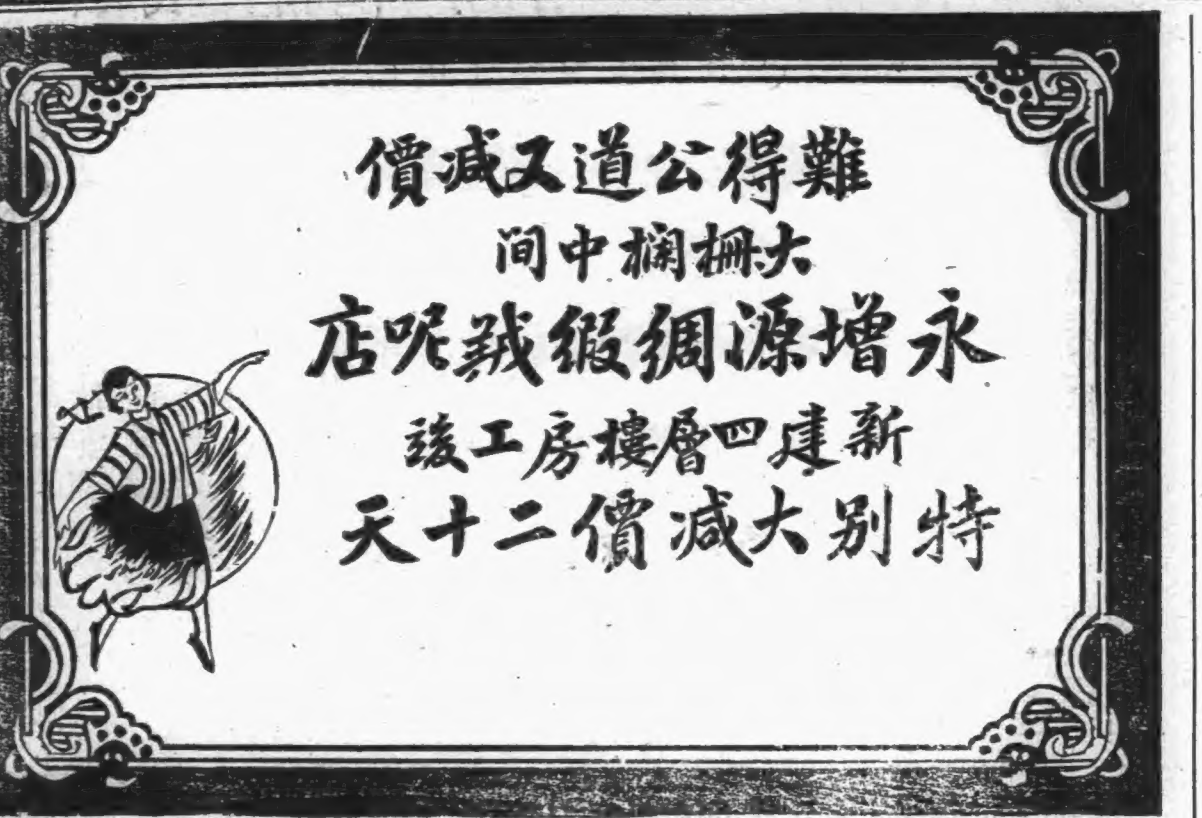 難得公道又減價
大柵欄中间
永增源綢緞羢呢店
新建四層樓房工竣
特别大減價二十天